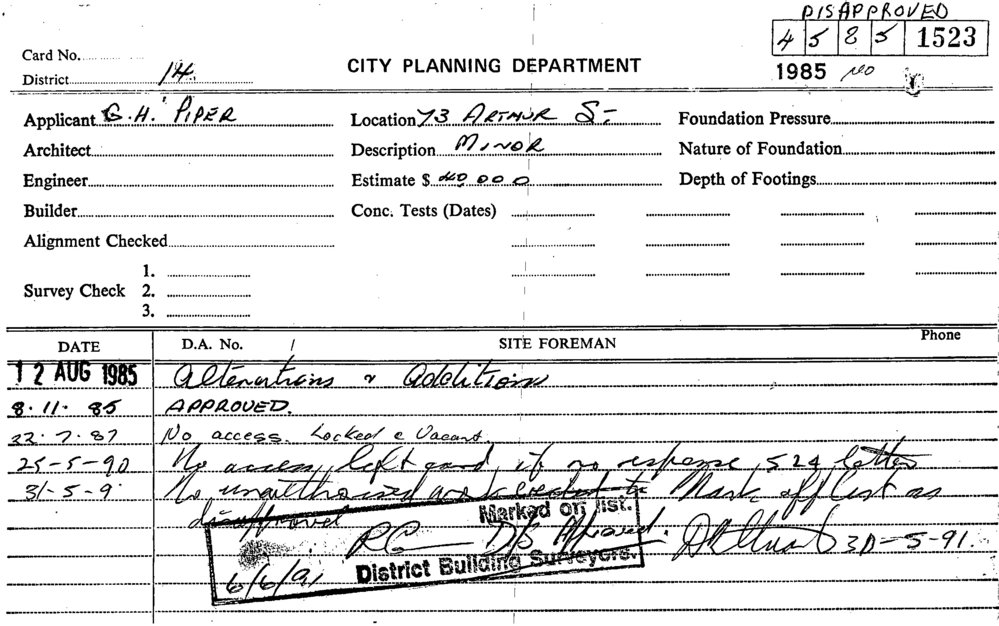 DISAPPROVED
4 5 8 5 1523
Card No.
District 14.
CITY PLANNING DEPARTMENT
1985
Applicant G.H. PIPER
Location 73 ARTHUR ST
Foundation Pressure
Architect
Description MINOR
Nature of Foundation
Engineer
Estimate $ 40 000
Depth of Footings
Builder
Conc. Tests (Dates)
Alignment Checked
Survey Check
1.
2.
3.
DATE D.A. No. SITE FOREMAN Phone
12 AUG 1985 Alterations & Additions
8.11.85 APPROVED.
22.7.87 No access. Locked & Vacant.
25-5-90 No access, left card, if no response, S29 letter
31-5-9 No unauthorised work Mark off list as
disapproved
Marked off list.
RC D/S Approved. 30-5-91.
District Building Surveyors.
6/6/91